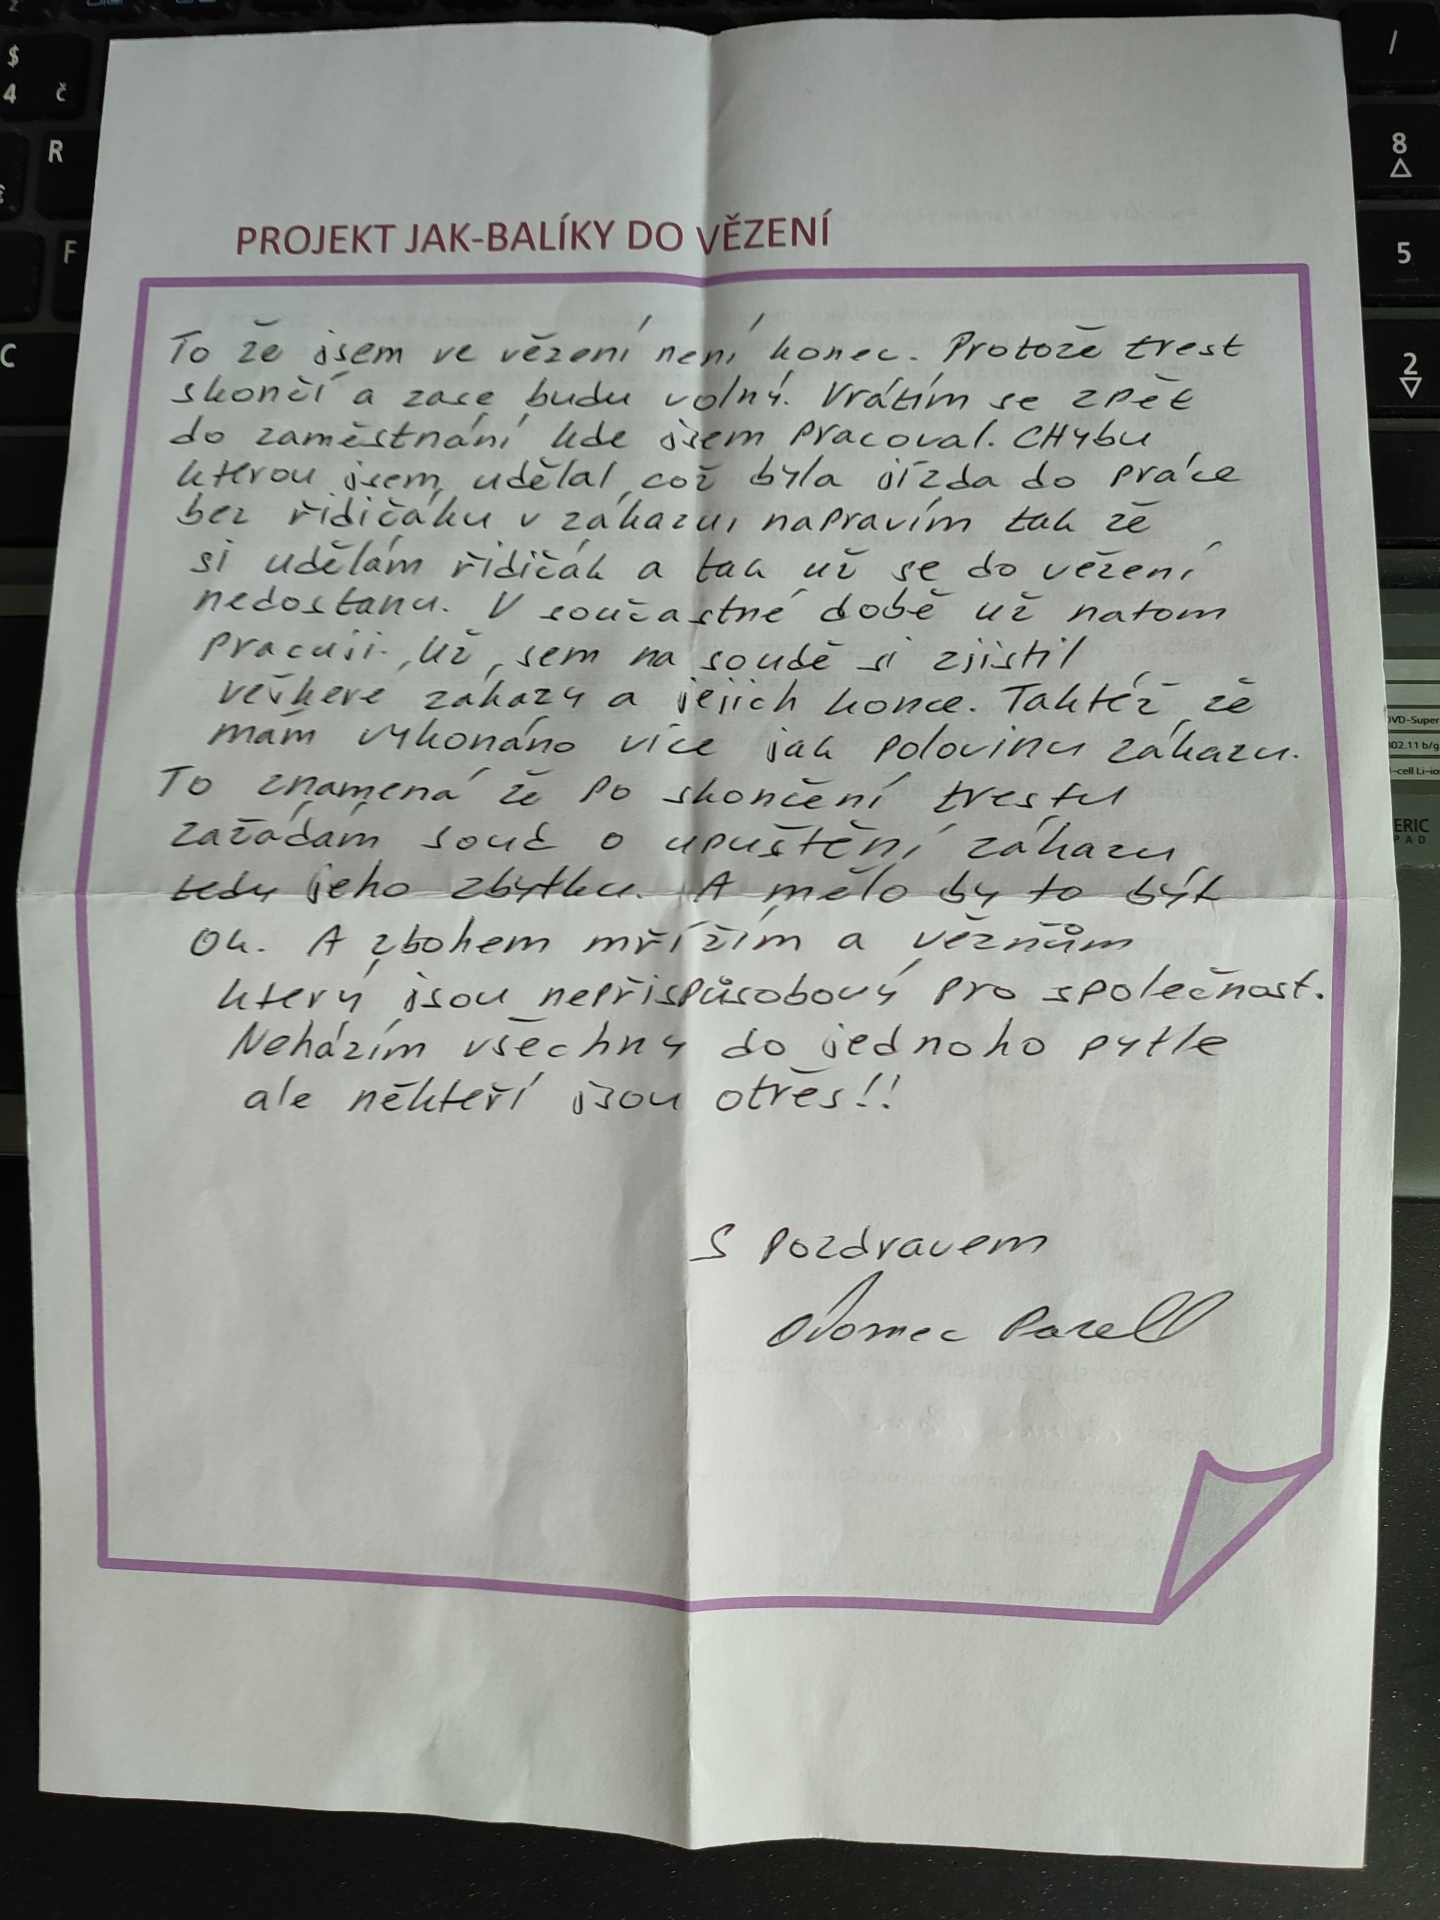 PROJEKT JAK-BALÍKY DO VĚZENÍ
To že jsem ve vězení není konec. Protože trest
skončí a zase budu volný. Vrátím se zpět
do zaměstnání kde jsem pracoval. CHybu
kterou jsem udělal, což byla jízda do práce
bez řidičáku v zákazu, napravím tak že
si udělám řidičák a tak už se do vězení
nedostanu. V součastné době už natom
pracuji. Už sem na soudě si zjistil
veškeré zákazy a jejich konce. Taktéž že
mám vykonáno více jak polovinu zákazu.
To znamená že po skončení trestu
zažádám soud o upuštění zákazu
tedy jeho zbytku. A mělo by to být
Ok. A zbohem mřížím a vězňům
který jsou nepřispůsobový pro společnost.
Neházím všechny do jednoho pytle
ale někteří jsou otřes!!
S pozdravem
$
4 č
R
F
C
/
8
5
2
DVD-Super
802.11 b/g
-cell Li-ion
ERIC
PAD